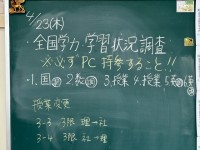 4/23(木)
・全国学力・学習状況調査
※必ずPC持参すること!!
・1.国 2.数 3.授業 4.授業 5.
授業変更
3-3 3限 理→社
3-4 3限 社→理